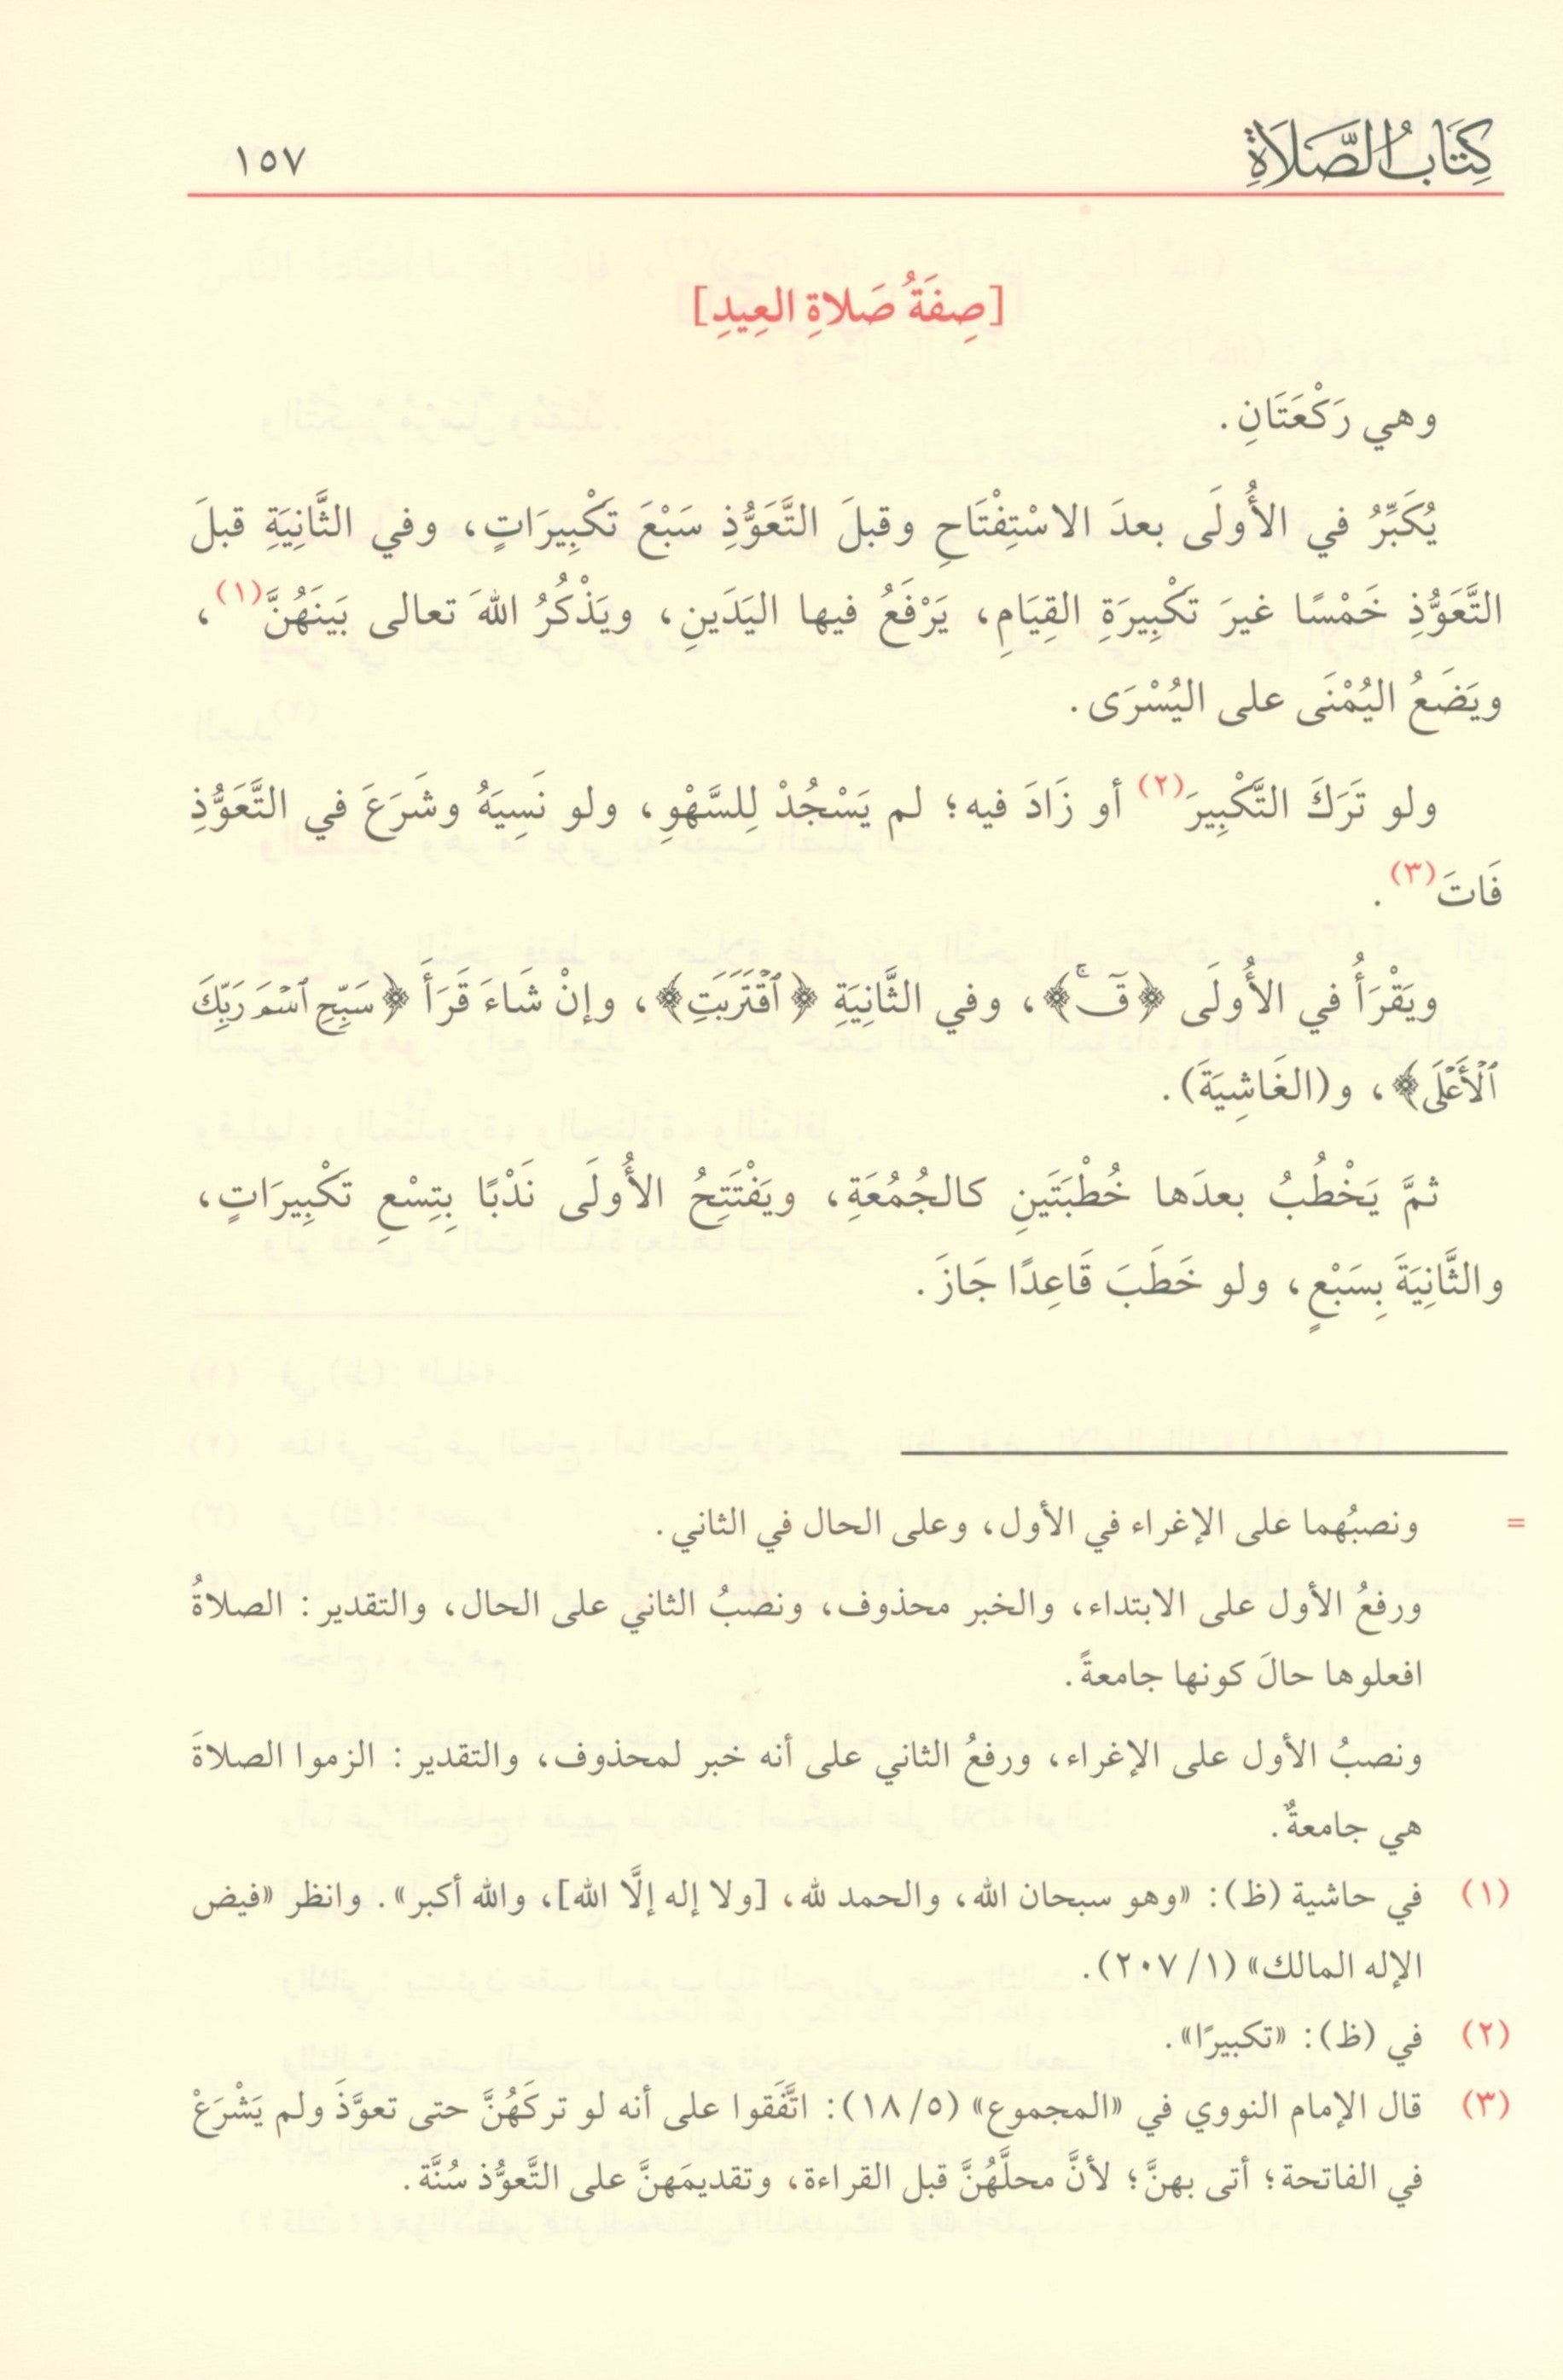 كِتَابُ الصَّلَاةِ
١٥٧
[صِفَةُ صَلاةِ العِيدِ]
وهي رَكْعَتَانِ.
يُكَبِّرُ في الأُولَى بعدَ الاسْتِفْتَاحِ وقبلَ التَّعَوُّذِ سَبْعَ تَكْبِيرَاتٍ، وفي الثَّانِيَةِ قبلَ
التَّعَوُّذِ خَمْسًا غيرَ تَكْبِيرَةِ القِيَامِ، يَرْفَعُ فيها اليَدَينِ، ويَذْكُرُ اللهَ تعالى بَينَهُنَّ(١)،
ويَضَعُ اليُمْنَى على اليُسْرَى.
ولو تَرَكَ التَّكْبِيرَ(٢) أو زَادَ فيه؛ لم يَسْجُدْ لِلسَّهْوِ، ولو نَسِيَهُ وشَرَعَ في التَّعَوُّذِ
فَاتَ(٣).
ويَقْرَأُ في الأُولَى ﴿قٓۚ﴾، وفي الثَّانِيَةِ ﴿ٱقْتَرَبَتِ﴾، وإنْ شَاءَ قَرَأَ ﴿سَبِّحِ ٱسْمَ رَبِّكَ
ٱلْأَعْلَى﴾، و(الغَاشِيَةَ).
ثمَّ يَخْطُبُ بعدَها خُطْبَتَينِ كالجُمُعَةِ، ويَفْتَتِحُ الأُولَى نَدْبًا بِتِسْعِ تَكْبِيرَاتٍ،
والثَّانِيَةَ بِسَبْعٍ، ولو خَطَبَ قَاعِدًا جَازَ.
= ونصبُهما على الإغراء في الأول، وعلى الحال في الثاني.
ورفعُ الأول على الابتداء، والخبر محذوف، ونصبُ الثاني على الحال، والتقدير: الصلاةُ
افعلوها حالَ كونها جامعةً.
ونصبُ الأول على الإغراء، ورفعُ الثاني على أنه خبر لمحذوف، والتقدير: الزموا الصلاةَ
هي جامعةٌ.
(١) في حاشية (ظ): «وهو سبحان الله، والحمد لله، [ولا إله إلَّا الله]، والله أكبر». وانظر «فيض
الإله المالك» (١/ ٢٠٧).
(٢) في (ظ): «تكبيرًا».
(٣) قال الإمام النووي في «المجموع» (٥/ ١٨): اتَّفَقوا على أنه لو تركَهُنَّ حتى تعوَّذَ ولم يَشْرَعْ
في الفاتحة؛ أتى بهنَّ؛ لأنَّ محلَّهُنَّ قبل القراءة، وتقديمَهنَّ على التَّعوُّذ سُنَّة.